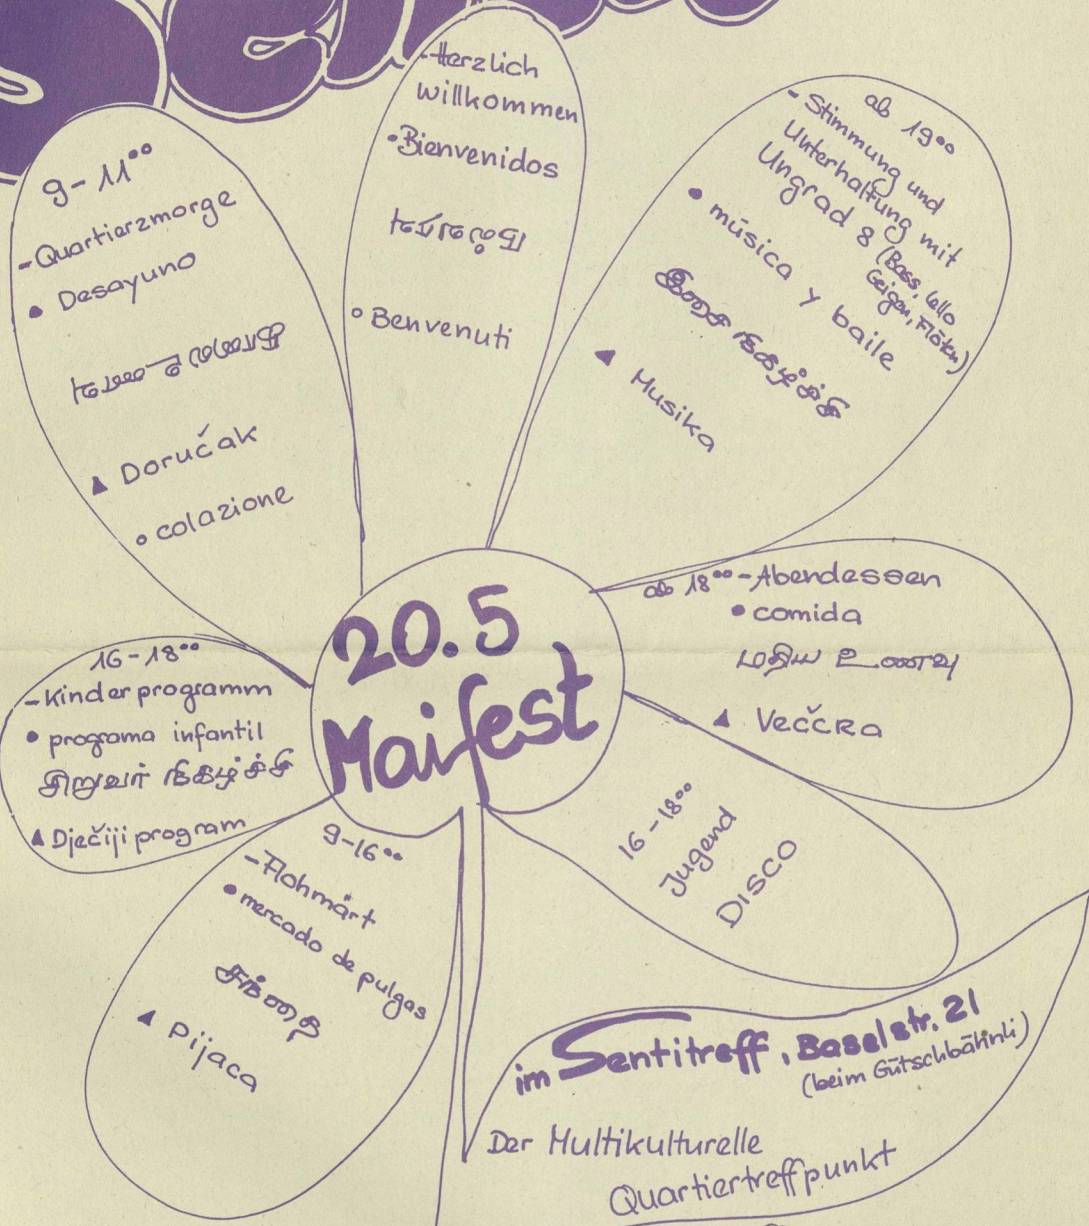 -Herzlich
willkommen
•Bienvenidos
° Benvenuti
9-11⁰⁰
-Quartierzmorge
• Desayuno
▲ Doručak
° colazione
ab 19⁰⁰
-Stimmung und
Unterhaltung mit
Ungrad 8 (Bass, Cello
Geigen, Flöten)
• música y baile
இசை நிகழ்ச்சி
▲ Musika
20.5
Maifest
ab 18⁰⁰ -Abendessen
• comida
மதிய உணவு
▲ VečČRa
16-18⁰⁰
-Kinderprogramm
• programa infantil
சிறுவர் நிகழ்ச்சி
▲ Dječiji program
16-18⁰⁰
Jugend
DISCO
9-16⁰⁰
-Flohmärt
• mercado de pulgas
சந்தை
▲ Pijaca
im Sentitreff, Baselstr. 21
(beim Gütschbähnli)
Der Multikulturelle
Quartiertreffpunkt